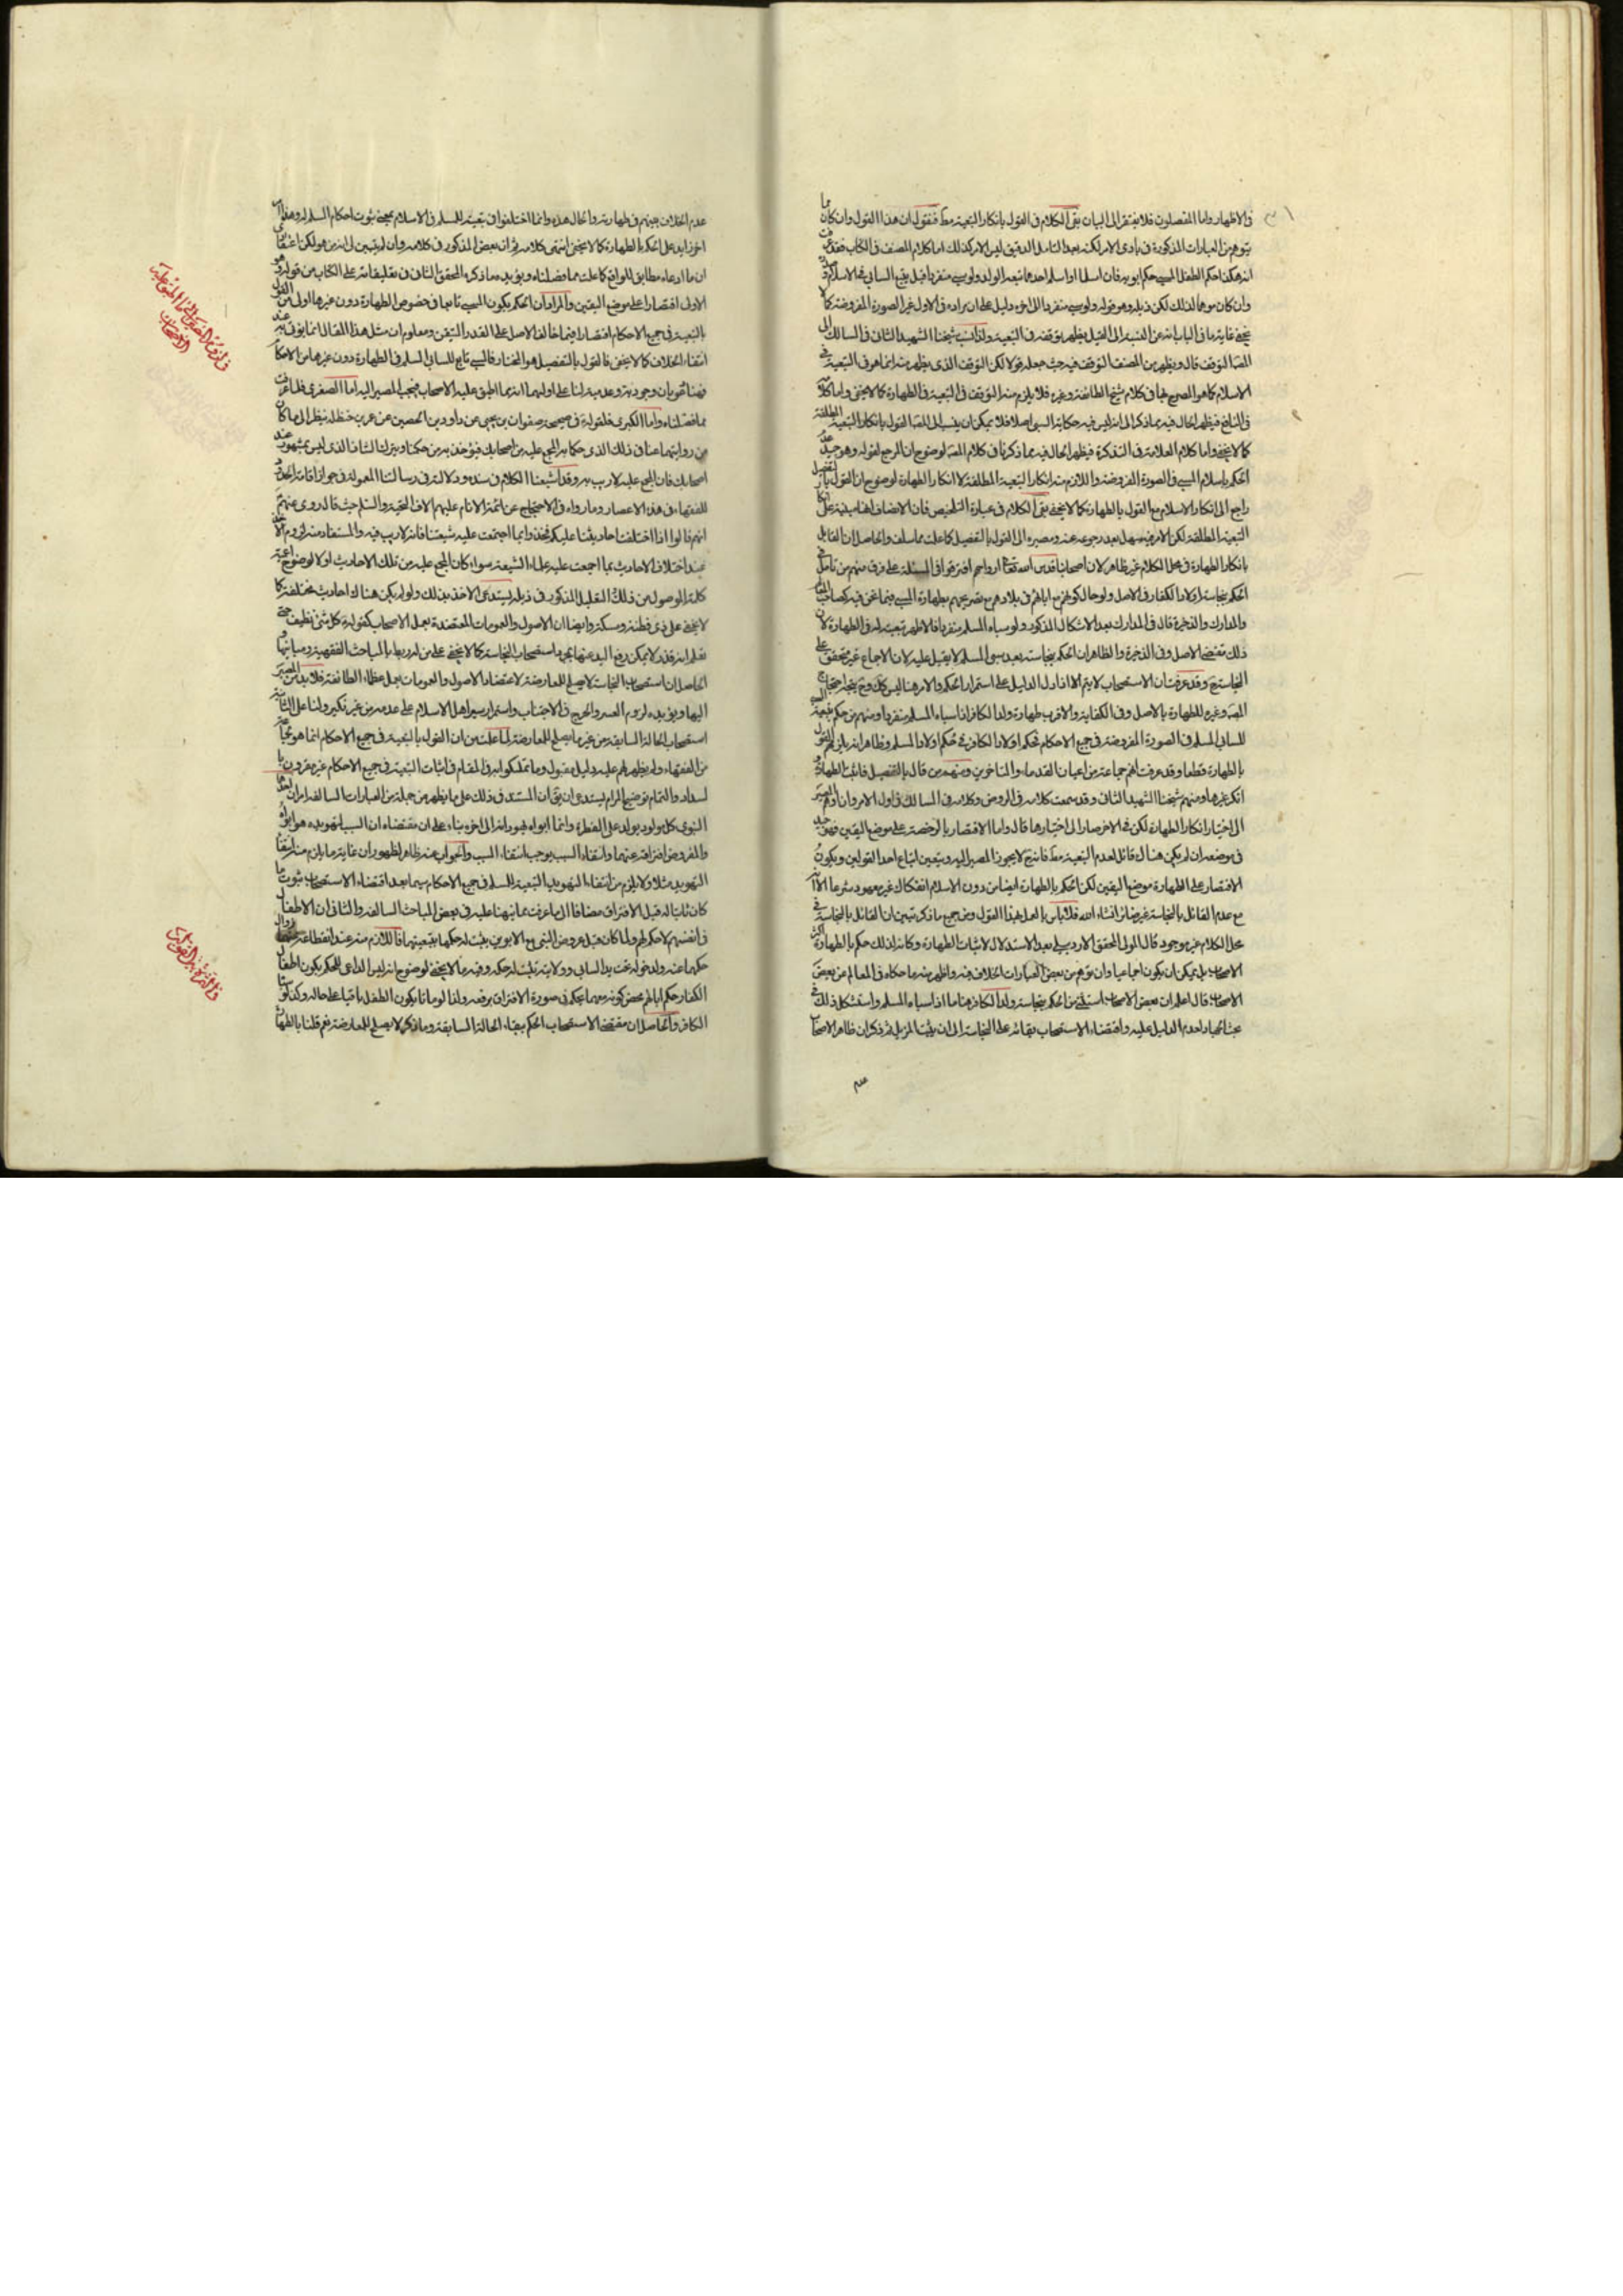 في الاظهار واما المفصلون فلا يفتقر الى البيان بقى الكلام في القول بانكار التبعية مط فنقول ان هذا القول وان كان مما
يتوهم من العبارات المذكورة في بادى الامر لكنه بعد التامل الدقيق ليس الامر كذلك اما كلام المصنف في الكتاب فقد
انه هكذا حكم الطفل المسبي حكم ابويه فان اسلما او اسلم احدهما تبعه الولد ولو سبي منفردا قيل يتبع السابي في الاسلام
وان كان موهما لذلك لكن ذيله وهو قوله ولو سبي منفردا الى اخره دليل على ان مراده في الاول غير الصورة المفروضة كما لا
يخفى غاية ما في الباب انه عن النسبة الى القيل يظهر توقفه في التبعية ولذا نسب شيخنا الشهيد الثاني في المسالك الى
المصنف التوقف قال ويظهر من المصنف التوقف فيه حيث جعله قولا لكن التوقف الذي يظهر منه انما هو في التبعية في
الاسلام كما هو المصرح بها في كلام شيخ الطائفة وغيره فلا يلزم منه التوقف في التبعية في الطهارة كما لا يخفى واما كلامه
في النافع فيظهر الحال فيه مما ذكر الى انه ليس فيه حكاية السبي اصلا فلا يمكن ان ينسب الى المصنف القول بانكار التبعية المطلقة
كما لا يخفى واما كلام العلامة في التذكرة فيظهر الحال فيه مما ذكرنا في كلام المصنف لوضوح ان المرجع لقوله وهو جيد عدم
الحكم باسلام المسبي في الصورة المفروضة واللازم منه انكار التبعية المطلقة لا انكار الطهارة لوضوح ان القول بالتفصيل
راجع الى انكار الاسلام مع القول بالطهارة كما لا يخفى بقى الكلام في عبارة التلخيص فان الانصاف انها مبنية على انكار
التبعية المطلقة لكن الامر فيه سهل بعد رجوعه عنه ومصيره الى القول بالتفصيل كما علمت مما سلف والحاصل ان القائل
بانكار الطهارة في محل الكلام غير ظاهر لان اصحابنا قدس الله تعالى ارواحهم افترقوا في المسئلة على فرق منهم من تامل في
الحكم بنجاسة اولاد الكفار في الاصل ولو حال كونهم مع ابائهم في بلادهم مع تصريحهم بطهارة المسبي فيما نحن فيه كصاحب المعالم
والمدارك والذخيرة قال في المدارك بعد الاشكال المذكور ولو سباه المسلم منفردا فالاظهر تبعيته له في الطهارة لان
ذلك مقتضى الاصل وفي الذخيرة والظاهر ان الحكم بنجاسته بعد سبي المسلم لا يقبل عليه لان الاجماع غير متحقق على
النجاسة ح وقد عرفت ان الاستصحاب لا يتم الا اذا دل الدليل على استمرار الحكم والامر هنا ليس كك وح يتجه احتجاج
المصنف وغيره للطهارة بالاصل وفي الكفاية والاقرب طهارة ولد الكافر اذا سباه المسلم منفردا ومنهم من حكم بتبعية المسبي
للسابي المسلم في الصورة المفروضة في جميع الاحكام كحكم اولاد الكافر في حكم اولاد المسلم وظاهر انه يلزمهم القول
بالطهارة قطعا وقد عرفت انهم جماعة من اعيان القدماء والمتاخرين ومنهم من قال بالتفصيل فاثبت الطهارة و
انكر غيرها ومنهم شيخنا الشهيد الثاني وقد سمعت كلامه في الروض وكلامه في المسالك في اول الامر وان اوهم المصير
الى اختيار انكار الطهارة لكن في الاخر صار الى اختيارها قال واما الاقتصار بالرخصة على موضع اليقين فهو جيد
في موضعه ان لم يكن هناك قائل لعدم التبعية مط فانه ح لا يجوز المصير اليه ويتعين اتباع احد القولين ويكون
الاقتصار على الطهارة موضع اليقين لكن الحكم بالطهارة ايضا من دون الاسلام انفكاك غير معهود شرعا الا ان
مع عدم القائل بالنجاسة غير ضائر ان شاء الله فلا باس بالعمل بهذا القول ومن جميع ما ذكر تبين ان القائل بالنجاسة في
محل الكلام غير موجود قال المولى المحقق الاردبيلي بعد الاستدلال لاثبات الطهارة وكانه لذلك حكم بالطهارة اكثر
الاصحاب بل يمكن ان يكون اجماعيا وان توهم من بعض العبارات الخلاف فيه واظهر منه ما حكاه في المعالم عن بعض
الاصحاب قال اعلم ان بعض الاصحاب استثنى من الحكم بنجاسة ولد الكافر هنا ما اذا سباه المسلم واستشكل ذلك في
بحث الجهاد لعدم الدليل عليه واقتضاء الاستصحاب بقائه على النجاسة الى ان يثبت المزيل ثم ذكر ان ظاهر الاصحاب
عدم الخلاف بينهم في طهارته والحال هذه وانما اختلفوا في تبعيته للمسلم في الاسلام بمعنى ثبوت احكام المسلم له وهذا
اخر زايد على الحكم بالطهارة كما لا يخفى انتهى كلامه ثم ان بعض المذكور في كلامه وان لم يتبين لي انه من هو لكن اعتقادي
ان ما ادعاه مطابق للواقع كما علمت مما فصلناه ويؤيده ما ذكره المحقق الثاني في تعليقاته على الكتاب من قوله وهو
الاولى اقتصارا على موضع اليقين والمراد ان الحكم بكون المسبي تابعا في خصوص الطهارة دون غيرها اولى من القول
بالتبعية في جميع الاحكام اقتصارا فيما خالف الاصل على القدر المتيقن ومعلوم ان مثل هذا المقال انما يؤتى به عند
انتفاء الخلاف كما لا يخفى فالقول بالتفصيل هو المختار فالمسبي تابع للسابي المسلم في الطهارة دون غيرها من الاحكام
فهنا دعويان وجودية وعدمية لنا على اوليهما انه مما اطبق عليه الاصحاب فيجب المصير اليه اما الصغرى فلما عرفت
مما فصلناه واما الكبرى فلقوله ع في صحيحة صفوان بن يحيى عن داود بن الحصين عن عمر بن حنظلة ينظر الى ما كان
من روايتهما عنا في ذلك الذي حكما به المجمع عليه من اصحابك فيؤخذ به من حكمنا ويترك الشاذ الذي ليس بمشهور عند
اصحابك فان المجمع عليه لا ريب فيه وقد اشبعنا الكلام في سنده ودلالته في رسالتنا المعمولة في جواز اقامة الحدود
للفقهاء في هذه الاعصار وما رواه في الاحتجاج عن ائمة الانام عليهم الاف التحية والسلم حيث قال روى عنهم
انهم قالوا اذا اختلفت احاديثنا عليكم فخذوا بما اجتمعت عليه شيعتنا فانه لا ريب فيه والمستفاد منه لزوم الاخذ
عند اختلاف الاحاديث بما اجمعت عليه علماء الشيعة سواء كان المجمع عليه من تلك الاحاديث او لا لوضوح
كلمة الموصول من ذلك التعليل المذكور في ذيله يستدعى الاخذ بذلك ولو لم يكن هناك احاديث مختلفة كما
لا يخفى على ذي فطنة ومسكة وايضا ان الاصول والعمومات المعتضدة بعمل الاصحاب كقوله ع كل شئ نظيف حتى
تعلم انه قذر لا يمكن رفع اليد عنها بمجرد استصحاب النجاسة كما لا يخفى على من له دربة بالمباحث الفقهية ومبانيها و
الحاصل ان استصحاب النجاسة لا يصلح للمعارضة لاعتضاد الاصول والعمومات بعمل عظماء الطائفة فلا بد من المصير
اليها ويؤيده لزوم العسر والحرج في الاجتناب واستمرار سيرة اهل الاسلام على عدمه من غير نكير ولنا على الثانية
استصحاب الحالة السابقة من غير ما يصلح للمعارضة لما علمت من ان القول بالتبعية في جميع الاحكام انما هو لجماعة
من الفقهاء ولم يظهر لهم عليه دليل مقبول وما تمسكوا به في المقام في اثبات التبعية في جميع الاحكام غير مقرون با
لسداد والتمام توضيح المرام يستدعى ان يق ان المستند في ذلك على ما يظهر من جملة من العبارات السالفة امران احدهما
النبوي كل مولود يولد على الفطرة وانما ابواه يهودانه الى اخره بناء على ان مقتضاه ان السبب لتهويده هو ابواه
والمفروض افتراقه عنهما وانتفاء السبب يوجب انتفاء المسبب والجواب عنه ظاهر لظهور ان غاية ما يلزم منه انتفاء
التهويد مثلا ولا يلزم من انتفاء التهويد التبعية للمسلم في جميع الاحكام سيما بعد اقتضاء الاستصحاب ثبوت ما
كان ثابتا له قبل الافتراق مضافا الى ما عرفت مما نبهنا عليه في بعض المباحث السالفة والثاني ان الاطفال
في انفسهم لا حكم لهم ولما كان قبل عروض السبي مع الابوين يثبت له حكمهما بتبعيتهما فاللازم منه عند انقطاعه عنهما زوال
حكمهما عنه ولدخوله تحت يد السابي وولايته يثبت له حكمه وفيه ما لا يخفى لوضوح انه ليس الداعي للحكم بكون اطفال
الكفار حكم ابائهم محض كونه معهما ليحكم في صورة الافتراق برفعه ولذا لو ماتا يكون الطفل باقيا على حاله وكذا لو
الكافر والحاصل ان مقتضى الاستصحاب الحكم ببقاء الحالة السابقة وما ذكر لا يصلح للمعارضة نعم قلنا بالطهارة